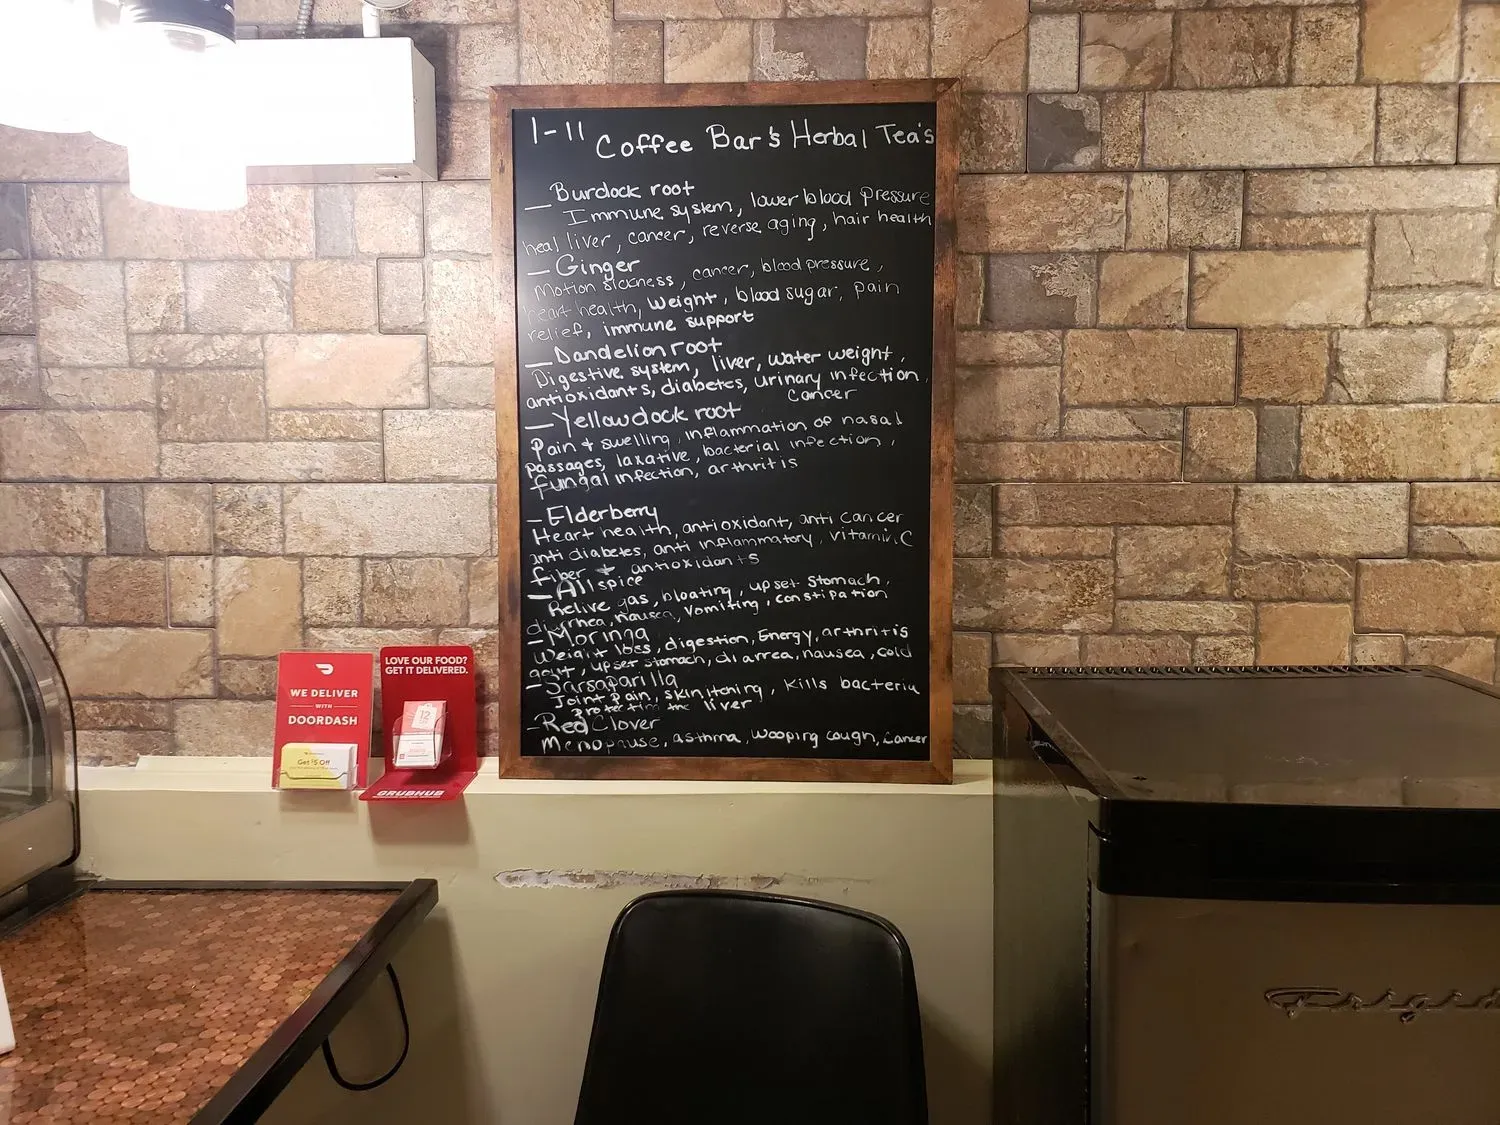 1-11 Coffee Bar's Herbal Tea's
— Burdock root
Immune system, lower blood pressure
heal liver, cancer, reverse aging, hair health
— Ginger
Motion sickness, cancer, blood pressure,
heart health, weight, blood sugar, pain
relief, immune support
— Dandelion root
Digestive system, liver, water weight,
antioxidants, diabetes, urinary infection,
cancer
— Yellowdock root
Pain & swelling, inflammation of nasal
passages, laxative, bacterial infection,
fungal infection, arthritis
- Elderberry
Heart health, antioxidant, anti cancer
anti diabetes, anti inflammatory, vitamin C
fiber + antioxidants
— Allspice
Relive gas, bloating, upset stomach,
diarrhea, nausea, vomiting, constipation
- Moringa
Weight loss, digestion, Energy, arthritis
gout, upset stomach, diarrea, nausea, cold
- Sarsaparilla
Joint Pain, skin itching, kills bacteria
Protecting the liver
- Red Clover
Menopause, asthma, wooping cough, cancer
WE DELIVER
WITH
DOORDASH
Get $5 Off
LOVE OUR FOOD?
GET IT DELIVERED.
12
GRUBHUB